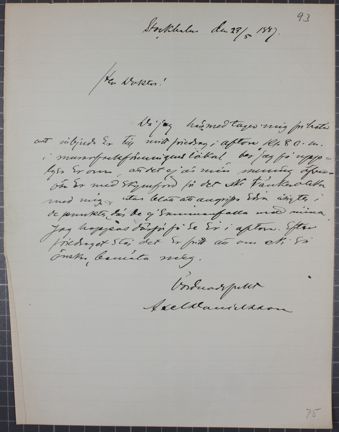 93
Stockholm den 28/5 1887.
Herr Doktor!
Då jag härmed tager mig friheten
att inbjuda Er till mitt föredrag i afton kl. 8 e.m.
i lokal, ber jag få upp-
lysa Er om, att det ej är min mening
Er med det
med mig, utan blott att angripa Edra åsigter i
de punkter, där de ej sammanfalla med mina.
Jag hoppas därför få se Er i afton. Efter
föredraget står det Er fritt att om Ni så
önskar, bemöta mig.
Vördnadsfullt
Axel Danielsson
75